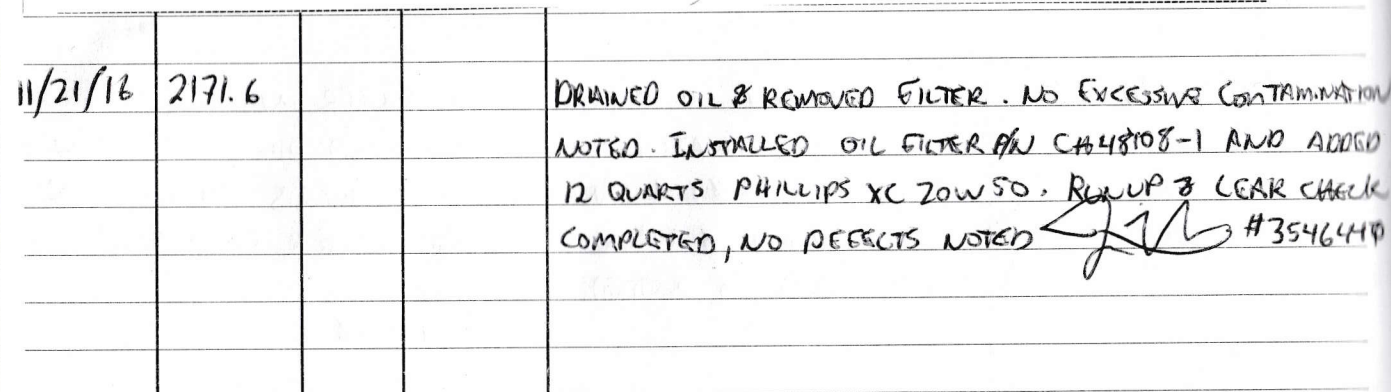 11/21/16 2171.6 DRAINED OIL & REMOVED FILTER. NO EXCESSIVE CONTAMINATION
NOTED. INSTALLED OIL FILTER P/N CH48108-1 AND ADDED
12 QUARTS PHILLIPS XC 20W50. RUNUP & LEAK CHECK
COMPLETED, NO DEFECTS NOTED